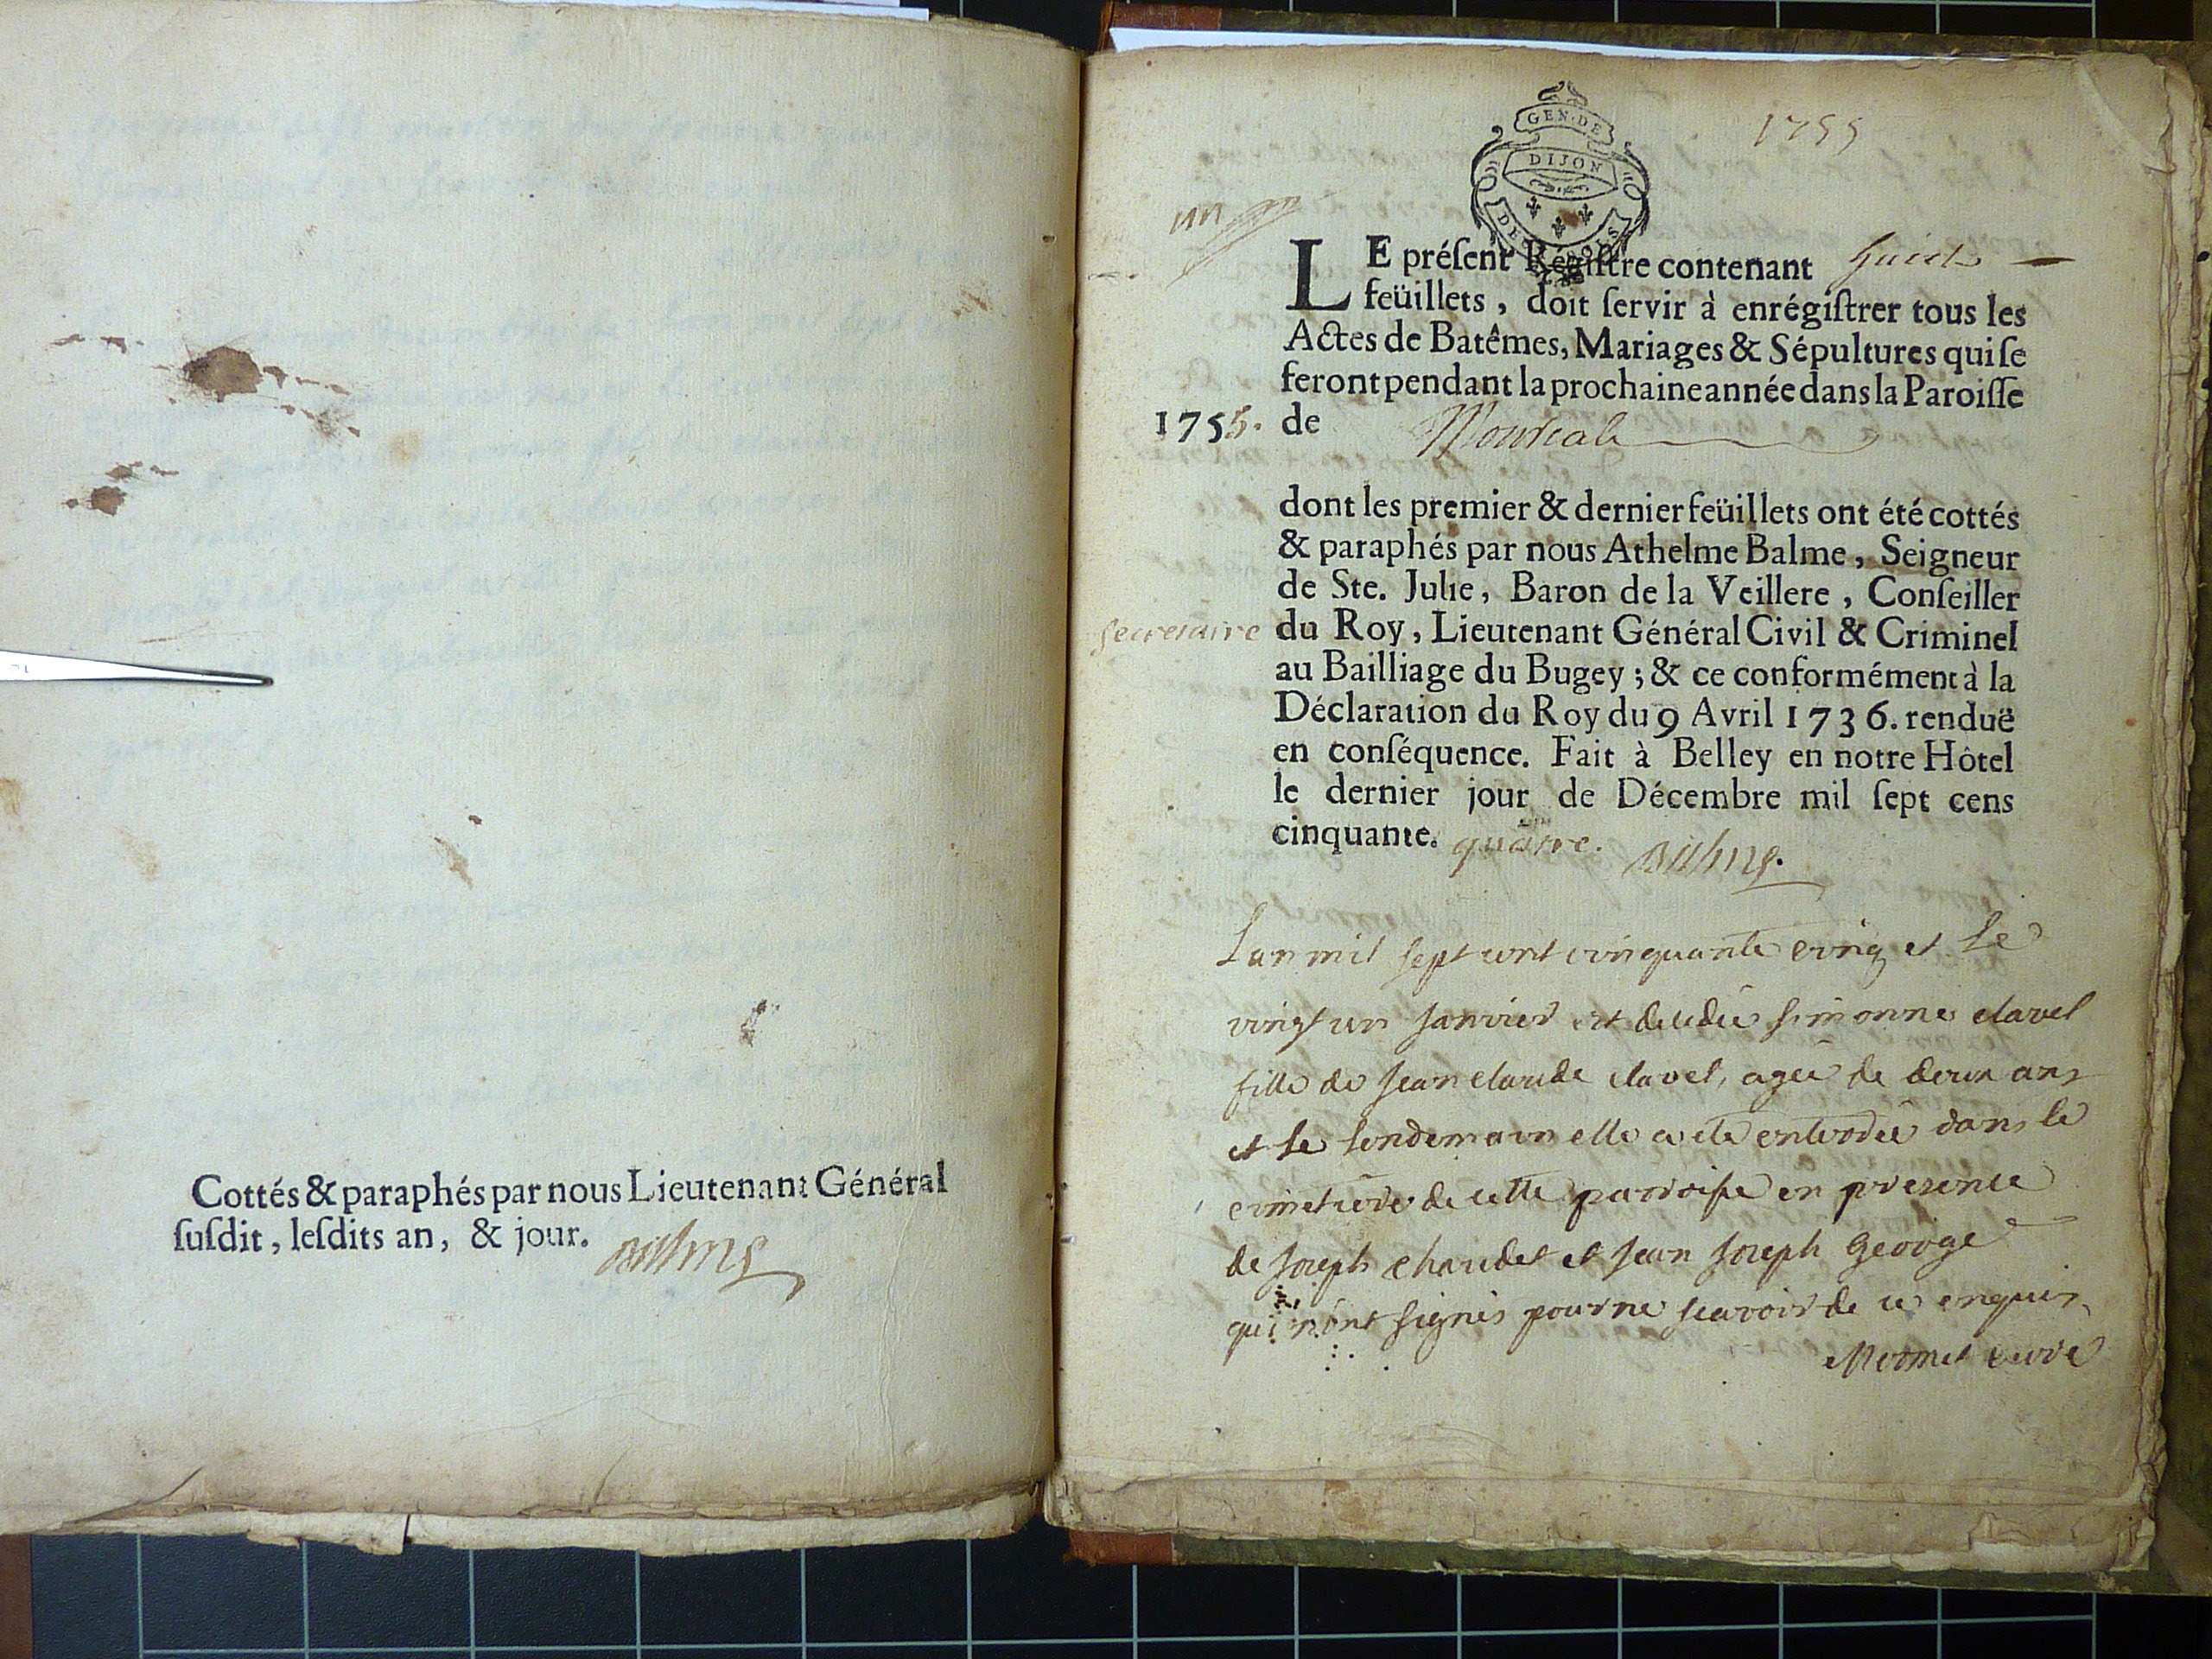 Cottés & paraphés par nous Lieutenant Général
ſuſdit, leſdits an, & jour. Balme
1755
GEN. DE
DIJON
un
LE préſent Régiſtre contenant huict
feüillets, doit ſervir à enrégiſtrer tous les
Actes de Batêmes, Mariages & Sépultures qui ſe
feront pendant la prochaine année dans la Paroiſſe
1755. de Montreal
dont les premier & dernier feüillets ont été cottés
& paraphés par nous Athelme Balme, Seigneur
de Ste. Julie, Baron de la Veillere, Conſeiller
secretaire du Roy, Lieutenant Général Civil & Criminel
au Bailliage du Bugey; & ce conformément à la
Déclaration du Roy du 9 Avril 1736. renduë
en conſéquence. Fait à Belley en notre Hôtel
le dernier jour de Décembre mil ſept cens
cinquante. quatre. Balme.
Lan mil sept cent cinquante cinq et le
vingt un janvier est decedée simonne clavel
fille de jean claude clavel, agée de deux ans
et le lendemain elle a eté enterrée dans le
cimetiere de cette parroisse en presence
de joseph chaudet et jean joseph george
qui n'ont signés pour ne scavoir de ce enquis
Mermet curé